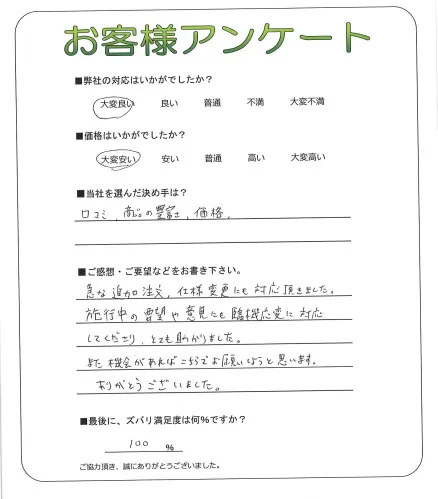 お客様アンケート
■弊社の対応はいかがでしたか？
大変良い 良い 普通 不満 大変不満
■価格はいかがでしたか？
大変安い 安い 普通 高い 大変高い
■当社を選んだ決め手は？
口コミ、商品の豊富さ、価格、
■ご感想・ご要望などをお書き下さい。
急な追加注文、仕様変更にも対応頂きました。
施行中の要望や意見にも臨機応変に対応
してくださり、とても助かりました。
また機会があればこちらでお願いしようと思います。
ありがとうございました。
■最後に、ズバリ満足度は何％ですか？
100 ％
ご協力頂き、誠にありがとうございました。